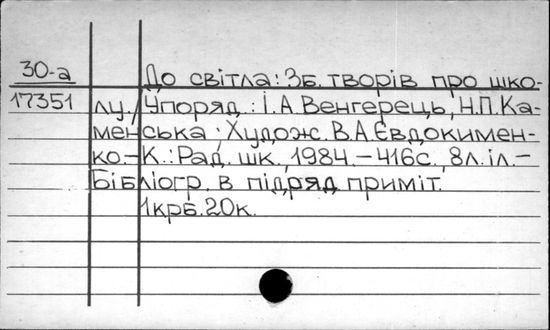 30-а До світла: Зб. творів про шко-
17351 лу / Упоряд.: І.А. Венгерець, Н.П. Ка-
менська; Худож. В.А. Євдокимен-
ко. – К.: Рад. шк., 1984. – 416с., 8л. іл. –
Бібліогр. в підряд. приміт.
1крб. 20к.